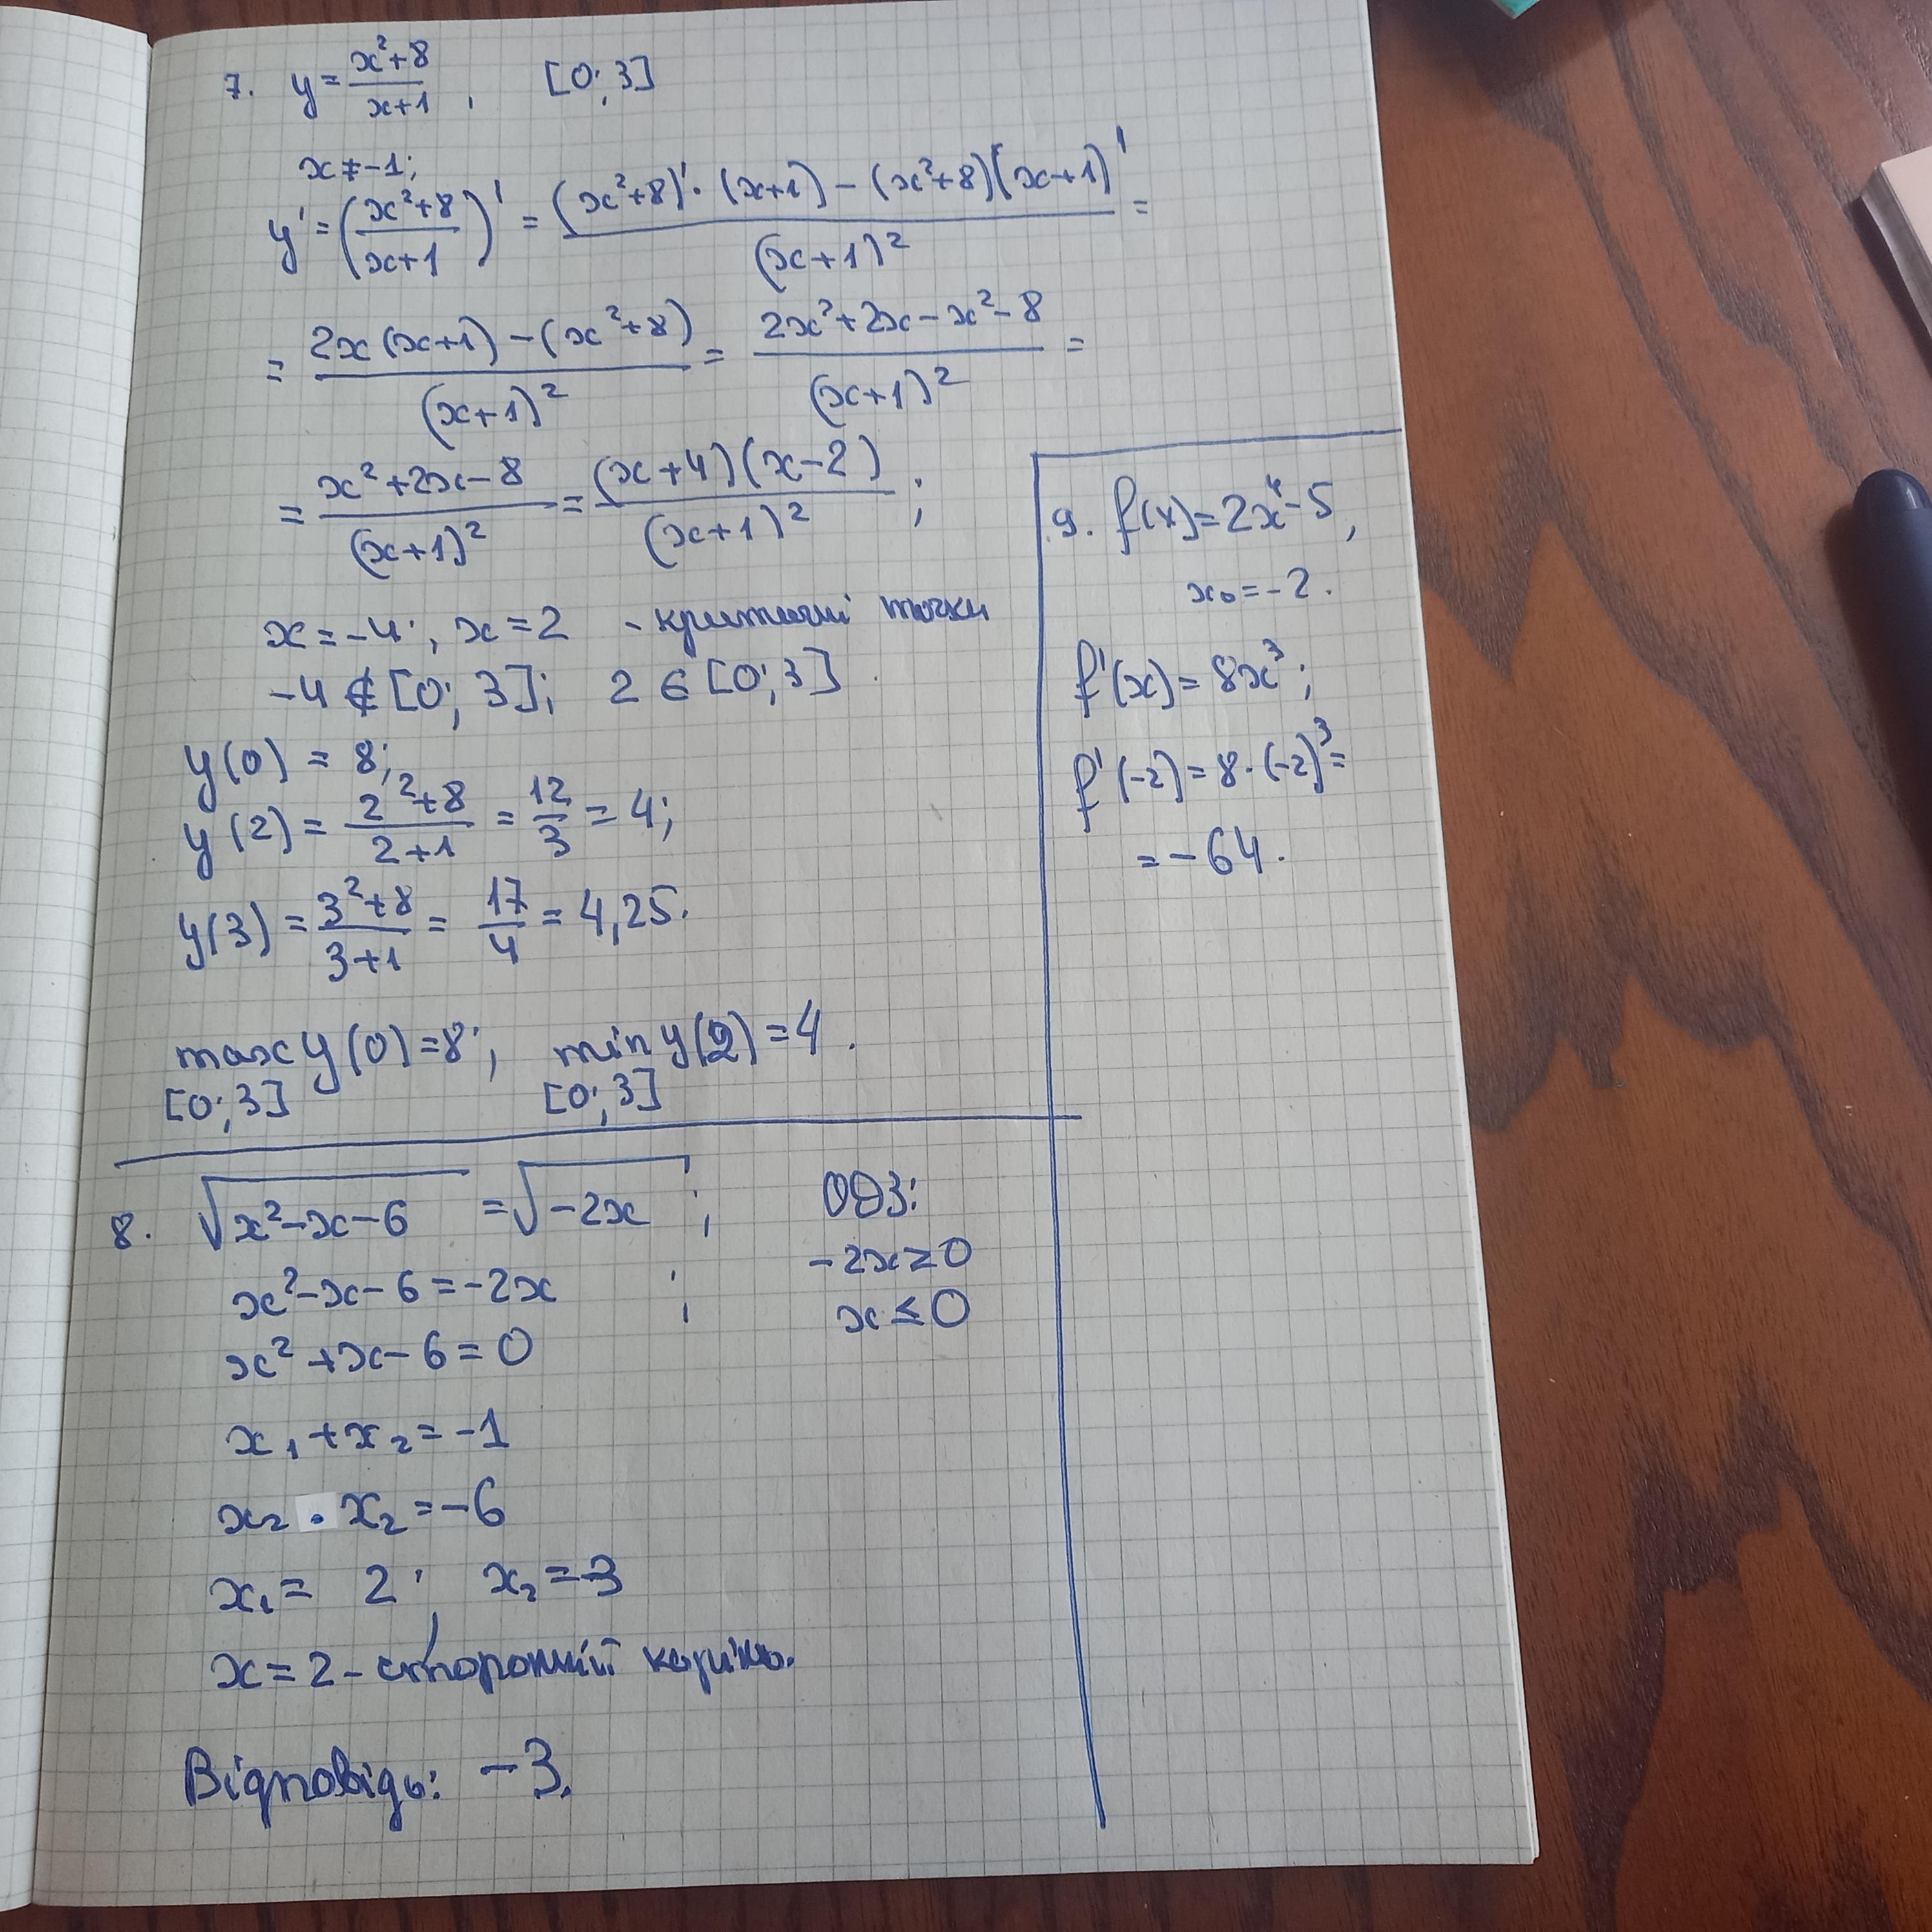 7. y = (x²+8)/(x+1), [0; 3]
x ≠ -1;
y' = ((x²+8)/(x+1))' = ((x²+8)'·(x+1) - (x²+8)(x+1)')/(x+1)² =
= (2x(x+1) - (x²+8))/(x+1)² = (2x²+2x-x²-8)/(x+1)² =
= (x²+2x-8)/(x+1)² = ((x+4)(x-2))/(x+1)²;
x = -4; x = 2 - критичні точки
-4 ∉ [0; 3]; 2 ∈ [0; 3].
y(0) = 8;
y(2) = (2²+8)/(2+1) = 12/3 = 4;
y(3) = (3²+8)/(3+1) = 17/4 = 4,25.
max y(0) = 8; min y(2) = 4.
[0; 3] [0; 3]
8. √(x²-x-6) = √(-2x);
x²-x-6 = -2x;
x²+x-6 = 0
x₁+x₂ = -1
x₂ · x₂ = -6
x₁ = 2; x₂ = -3
x = 2 - сторонній корінь.
Відповідь: -3.
ОДЗ:
-2x ≥ 0
x ≤ 0
9. f(x) = 2x⁴-5,
x₀ = -2.
f'(x) = 8x³;
f'(-2) = 8·(-2)³ =
= -64.